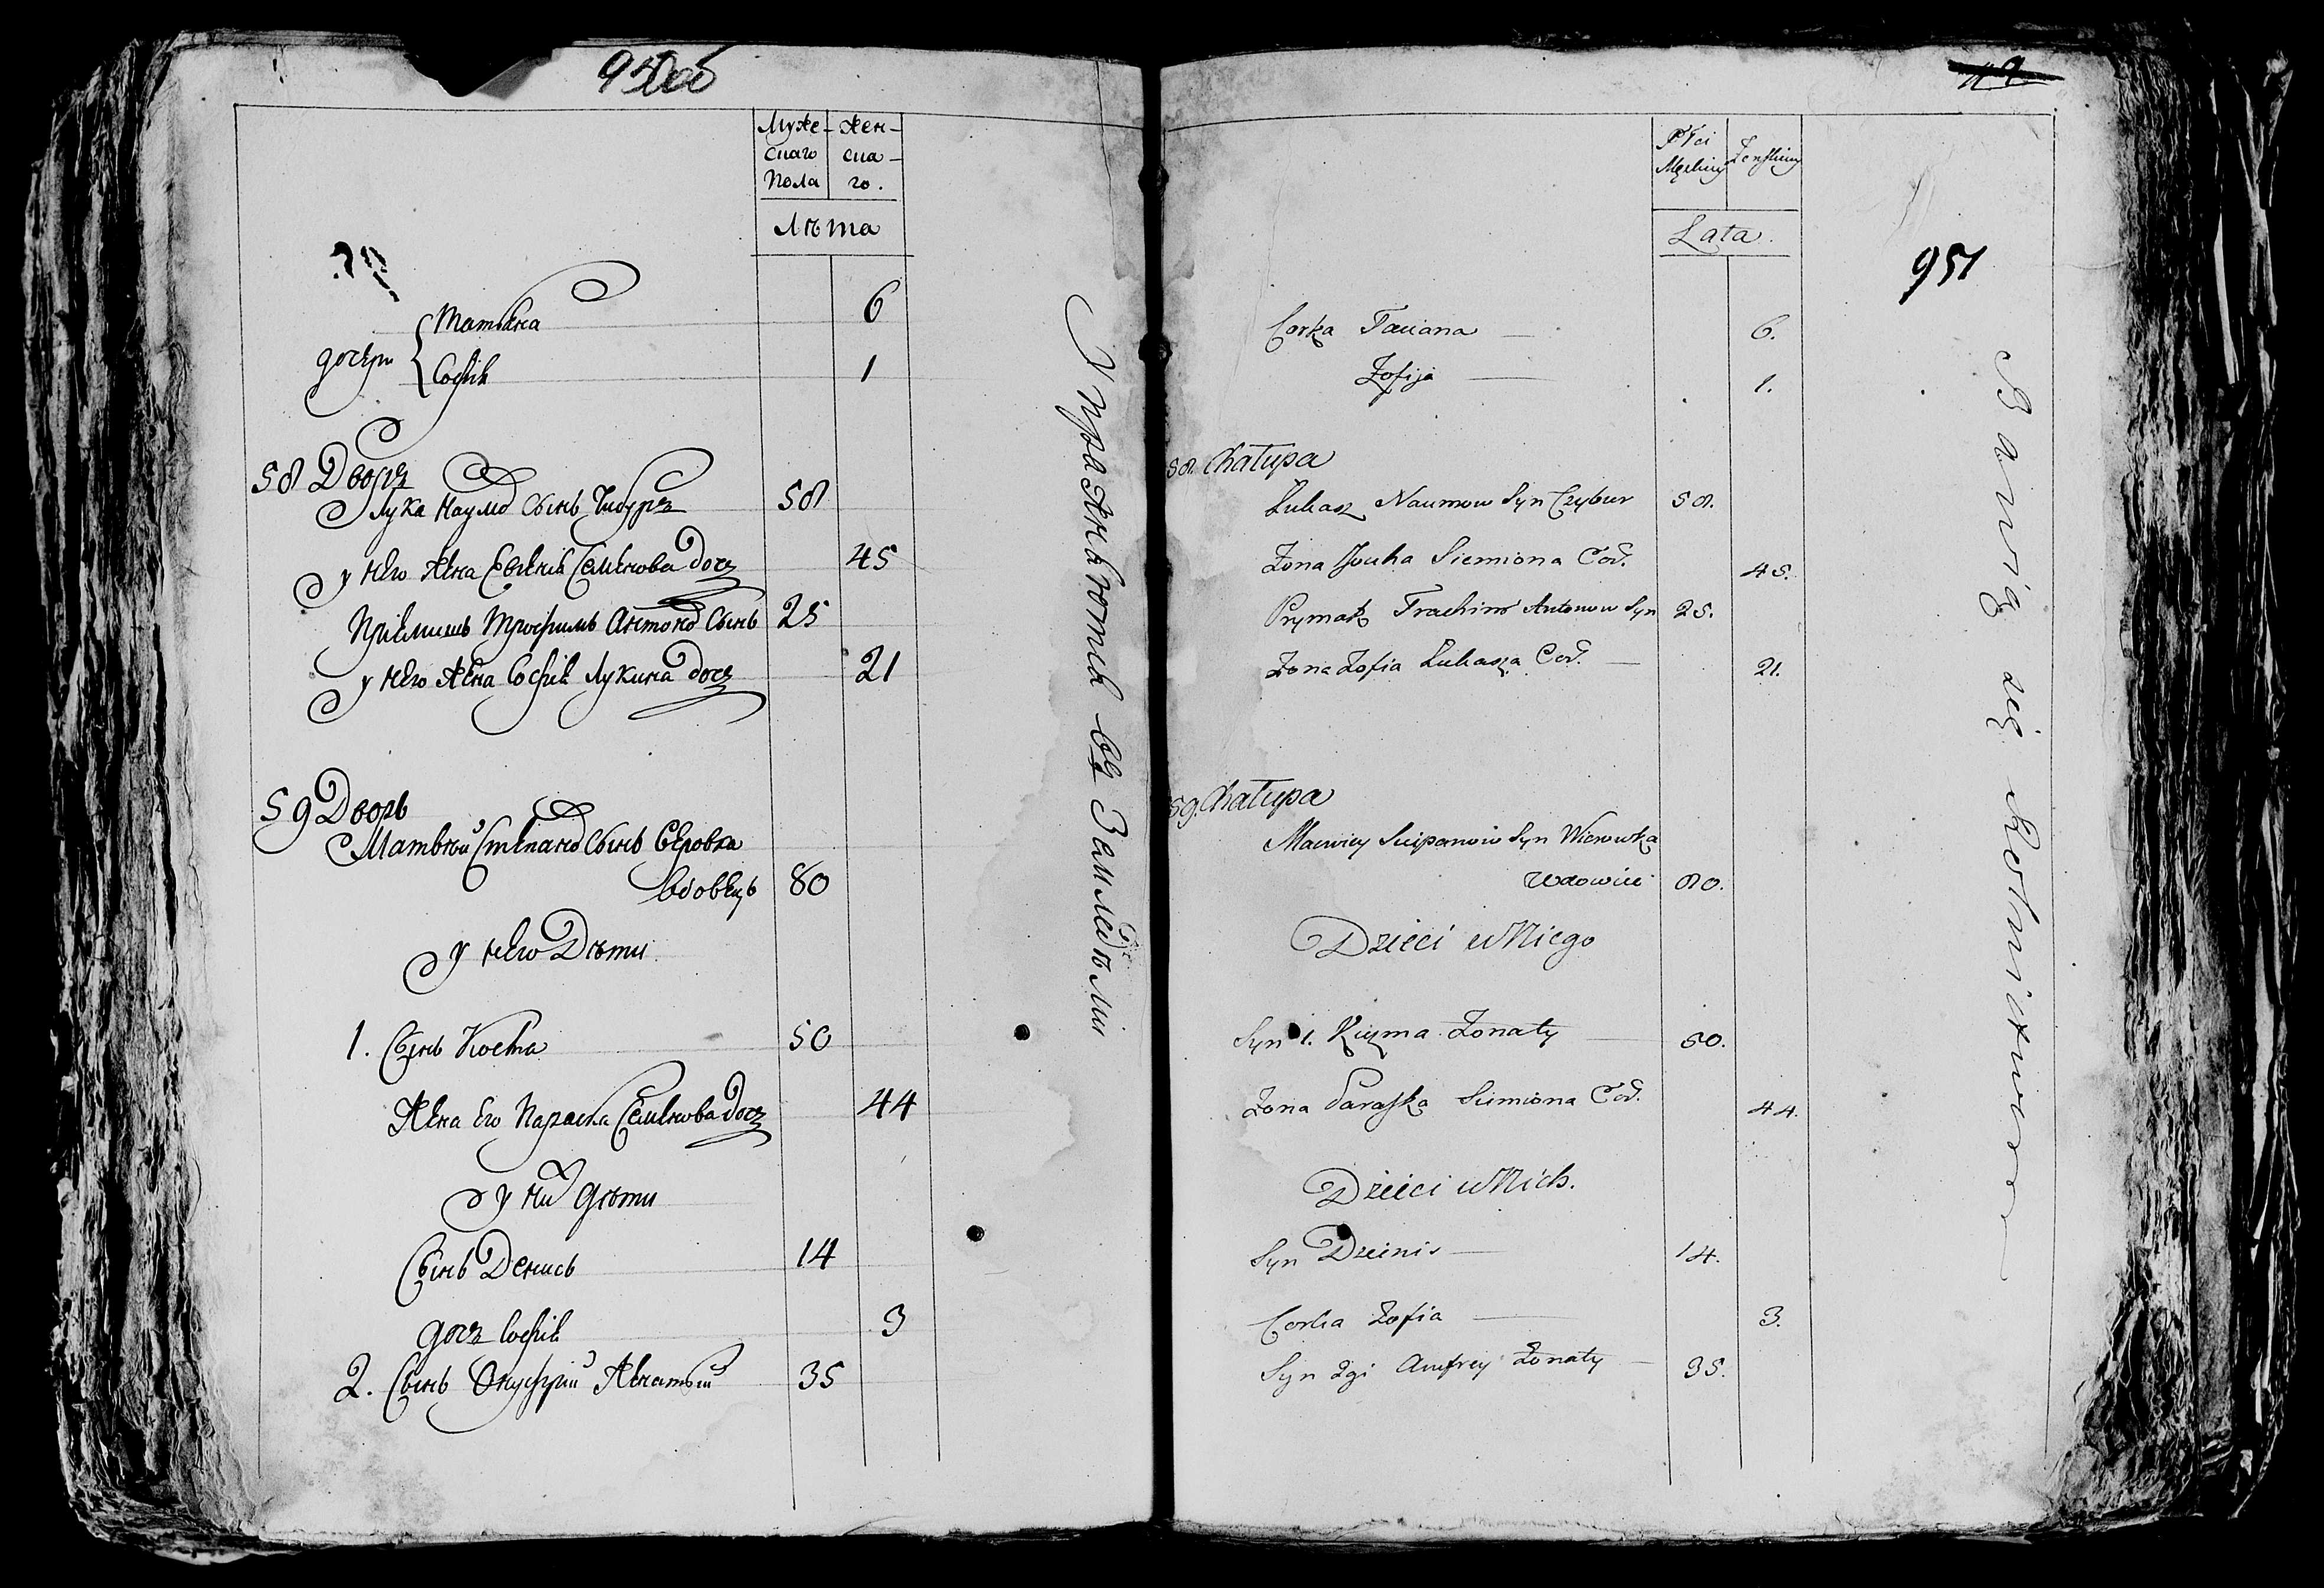 950об
Муже- Жен-
скаго ска-
пола го.
Лѣта
дочери { Татьяна 6
Софія 1
58 Дворъ
Лука Наумо Сынъ Чибуръ 58
у него жена Евгенія Семенова дочъ 45
Пріемишъ Трофимъ Антоно Сынъ 25
у него жена Софія Лукина дочъ 21
59 Дворъ
Матвѣй Степано Сынъ Веровка
вдовецъ 80
у него Дѣти
1. Сынъ Косма 50
Жена Его Параска Семенова дочъ 44
у них дѣти
Сынъ Денисъ 14
дочъ Софія 3
2. Сынъ Онуфрій Женатый 35
Упражняются въ Замледѣліи
Płci
Męskiey Zeńskiey
Lata.
951
Corka Taciana 6.
Zofija 1.
58. Chałupa
Łukasz Naumow Syn Czybur 58.
Zona Jouha Siemiona Cod. 45.
Prymak Trachim Antonow Syn 25.
Zona Zofia Łukasza Cod. 21.
59. Chałupa
Maciwiey Sciepanow Syn Wierowka
Wdowiec 80.
Dzieci u Niego
Syn 1. Kuzma Zonaty 50.
Zona Paraska Siemiona Cod. 44.
Dzieci u Nich.
Syn Dzienis 14.
Corka Zofia 3.
Syn 2gi Anufrey Zonaty 35.
Bawią się Rolnictwem